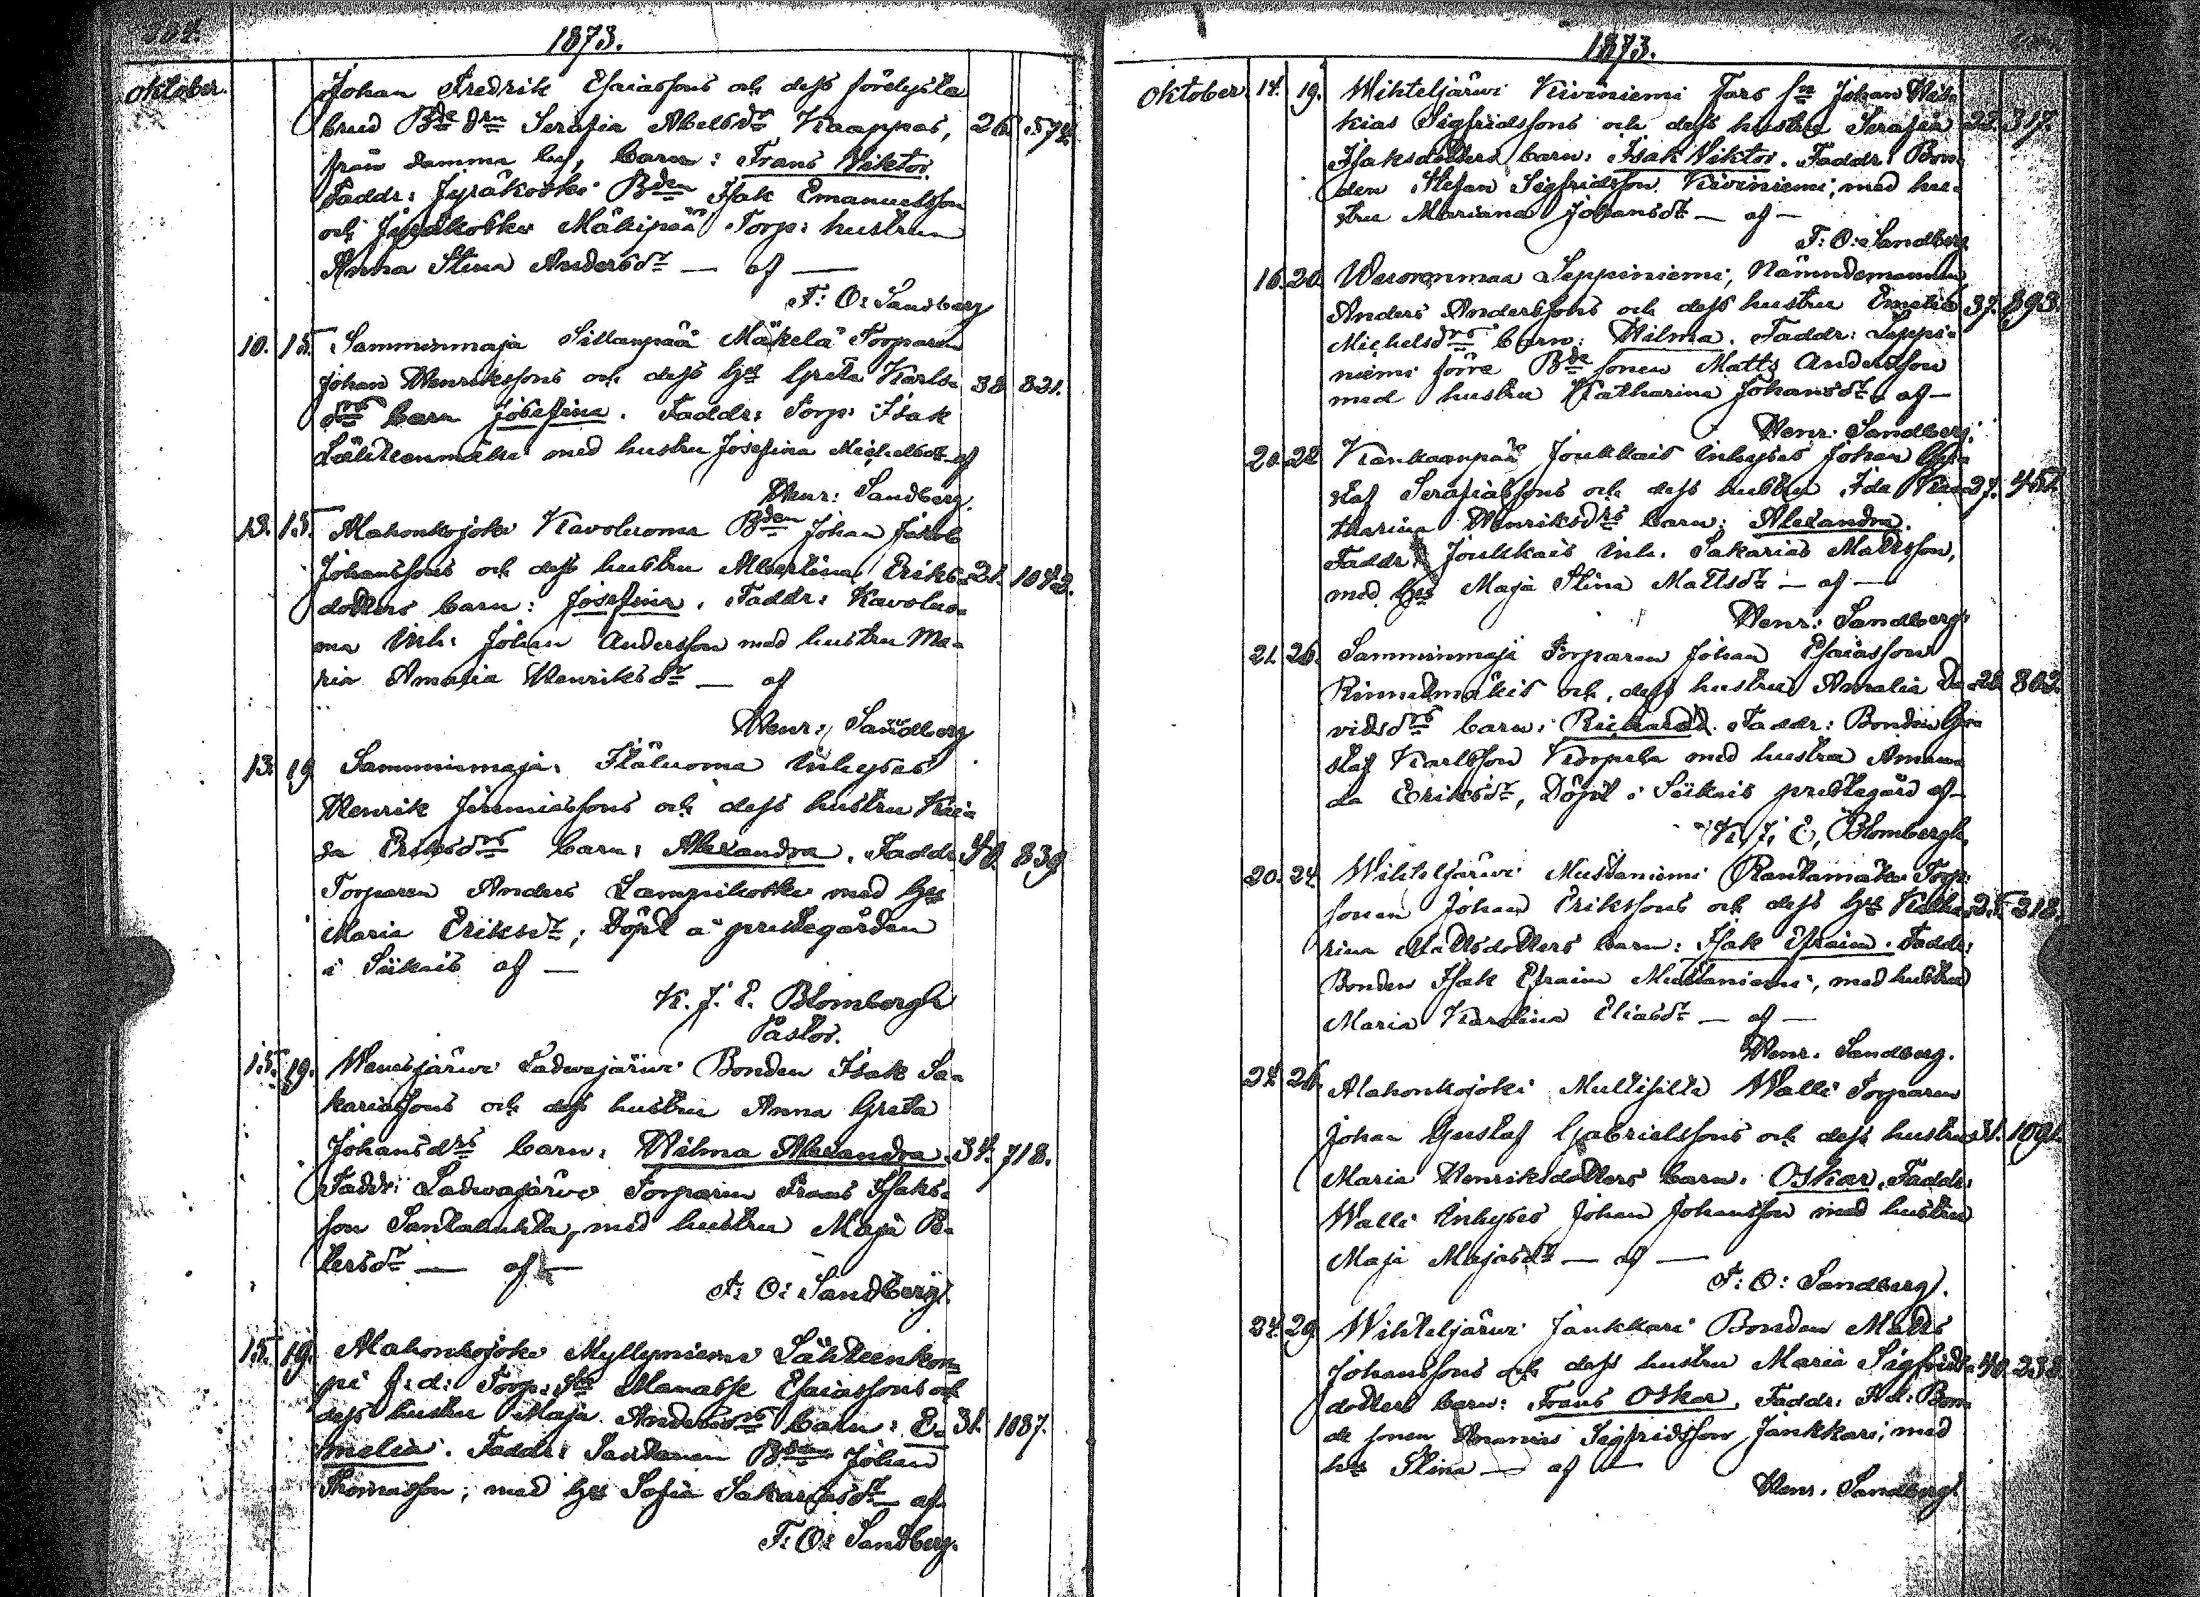 1873.
Oktober.
Johan Fredrik Esaiassons och dess förelysta
brud Bde drn Serafia Abelsdr Kaappas, 26. 572.
från samma by, barn: Frans Viktor.
Faddr: Jyräkoski Bden Isak Emanuelsson
och Jyräkoski Mäkipää Torp: hustrun
Anna Stina Andersdr — af —
F: O: Sandberg
10. 15. Samminmaja Sillanpää Mäkelä Torparen
Johan Henrikssons och dess Hu Greta Karls- 38 821.
drs barn Josefina. Faddr: Torp: Isak
Lähteenmäki med hustru Josefina Michelsdr af
Henr: Sandberg.
13. 15. Ala Honkojoki Kavoluoma Bden Johan Jakob
Johanssons och dess hustru Albertina Eriks- 21. 1042.
dotters barn: Josefina. Faddr: Kavoluo-
ma Inh: Johan Andersson med hustru Ma-
ria Amalia Henriksdr — af
Henr: Sandberg
13. 19 Samminmaja Itäluoma Inhyses
Henrik Jeremiassons och dess hustru Kai-
sa Eriksdrs barn: Alexandra. Faddr: 40. 839
Torparen Anders Lampikoski med Hu
Maria Eriksdr; Döpt å prestegården
i Siikais af —
K. J. E. Blombergh
Pastor.
15. 19. Wenesjärwi Ladwajärwi Bonden Isak Sa-
kariassons och dess hustru Anna Greta
Johansdrs barn: Wilma Alexandra. 34. 718.
Faddr: Ladwajärwi Torparen Frans Isaks-
son Santaluhta, med hustru Maja Pe-
tersdr — af —
F: O: Sandberg.
15. 19. Alahonkojoki Myllyniemi Lähteenkor-
pi f: d: Torp: Manasse Esaiassons och
dess hustru Maja Andersdrs barn: E- 31. 1087.
melia. Faddr: Santanen Bden Johan
Thomasson, med Hu Sofia Sakariasdr — af
F: O: Sandberg.
1873.
Oktober 14. 19. Wihteljärwi Kiviniemi Tors sn Johan Hes-
kias Sigfridssons och dess hustru Serafia 22. 317.
Isaksdotters barn: Isak Viktor. Faddr: Bon-
den Stefan Sigfridsson Kiviniemi, med hu-
stru Mariana Johansdr — af —
F: O: Sandberg
16. 20. Leppiniemi, Nämndemannen
Anders Anderssons och dess hustru Emelia 37. 893.
Michelsdrs barn: Wilma. Faddr: Leppi-
niemi förre Bde sonen Matts Andersson
med hustru Katharina Johansdr. af —
Henr: Sandberg.
20. 22 Kankaanpää Joukkais Inhyses Johan Gu-
staf Serafiassons och dess hustru Ida Ka- 27. 451
tharina Henriksdrs barn: Alexandra.
Faddr: Joukkais Inh. Sakarias Mattsson,
med Hu Maja Stina Mattsdr — af —
Henr: Sandberg.
21. 26. Samminmaja Torparen Johan Esaiasson
Rinnetmäkis och dess hustru Amalia Da- 28. 802.
vidsdrs barn: Richard. Faddr: Bonden Gu-
staf Karlsson Korpela med hustru Aman-
da Eriksdr, Döpt i Siikais prestegård af —
K. J. E. Blombergh.
20. 24. Wihteljärwi Mustaniemi Rantamäki Torp:
sonen Johan Erikssons och dess Hu Katha- 25. 218.
rina Mattsdotters barn: Isak Efraim. Faddr:
Bonden Isak Efraim Mustaniemi, med hustru
Maria Karolina Eliasdr — af —
Henr. Sandberg.
24. 26. Alahonkojoki Multisilta Walli Torparen
Johan Gustaf Gabrielssons och dess hustru 31. 1091.
Maria Henriksdotters barn: Oskar, Faddr:
Walli Inhyses Johan Johansson med hustru
Maja Majasdr — af —
F: O: Sandberg.
24. 29. Wihteljärwi Jankkari Bonden Matts
Johanssons och dess hustru Maria Sigfrids- 40. 238
dotters barn: Frans Oskar, Faddr: F. d: Bon-
de sonen Ananias Sigfridsson Jankkari, med
hu Stina — af —
Henr. Sandberg.